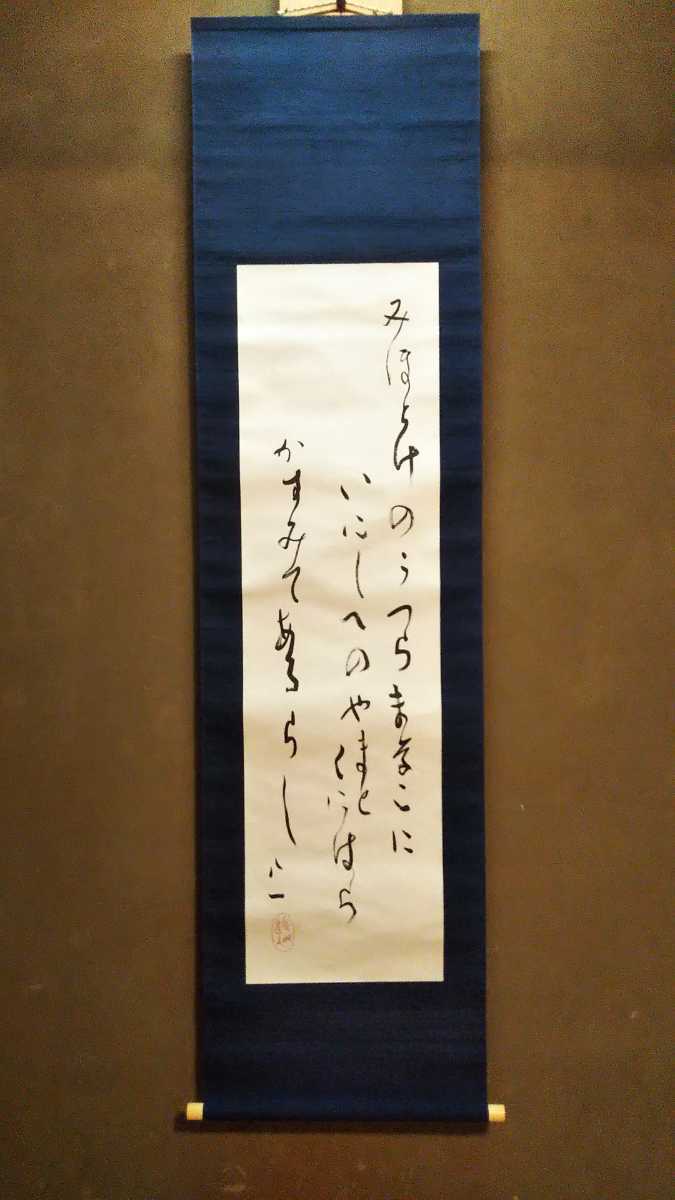 みほとけのうつらまなこに
いにしへのやまとくにはら
かすみてあるらし
八一